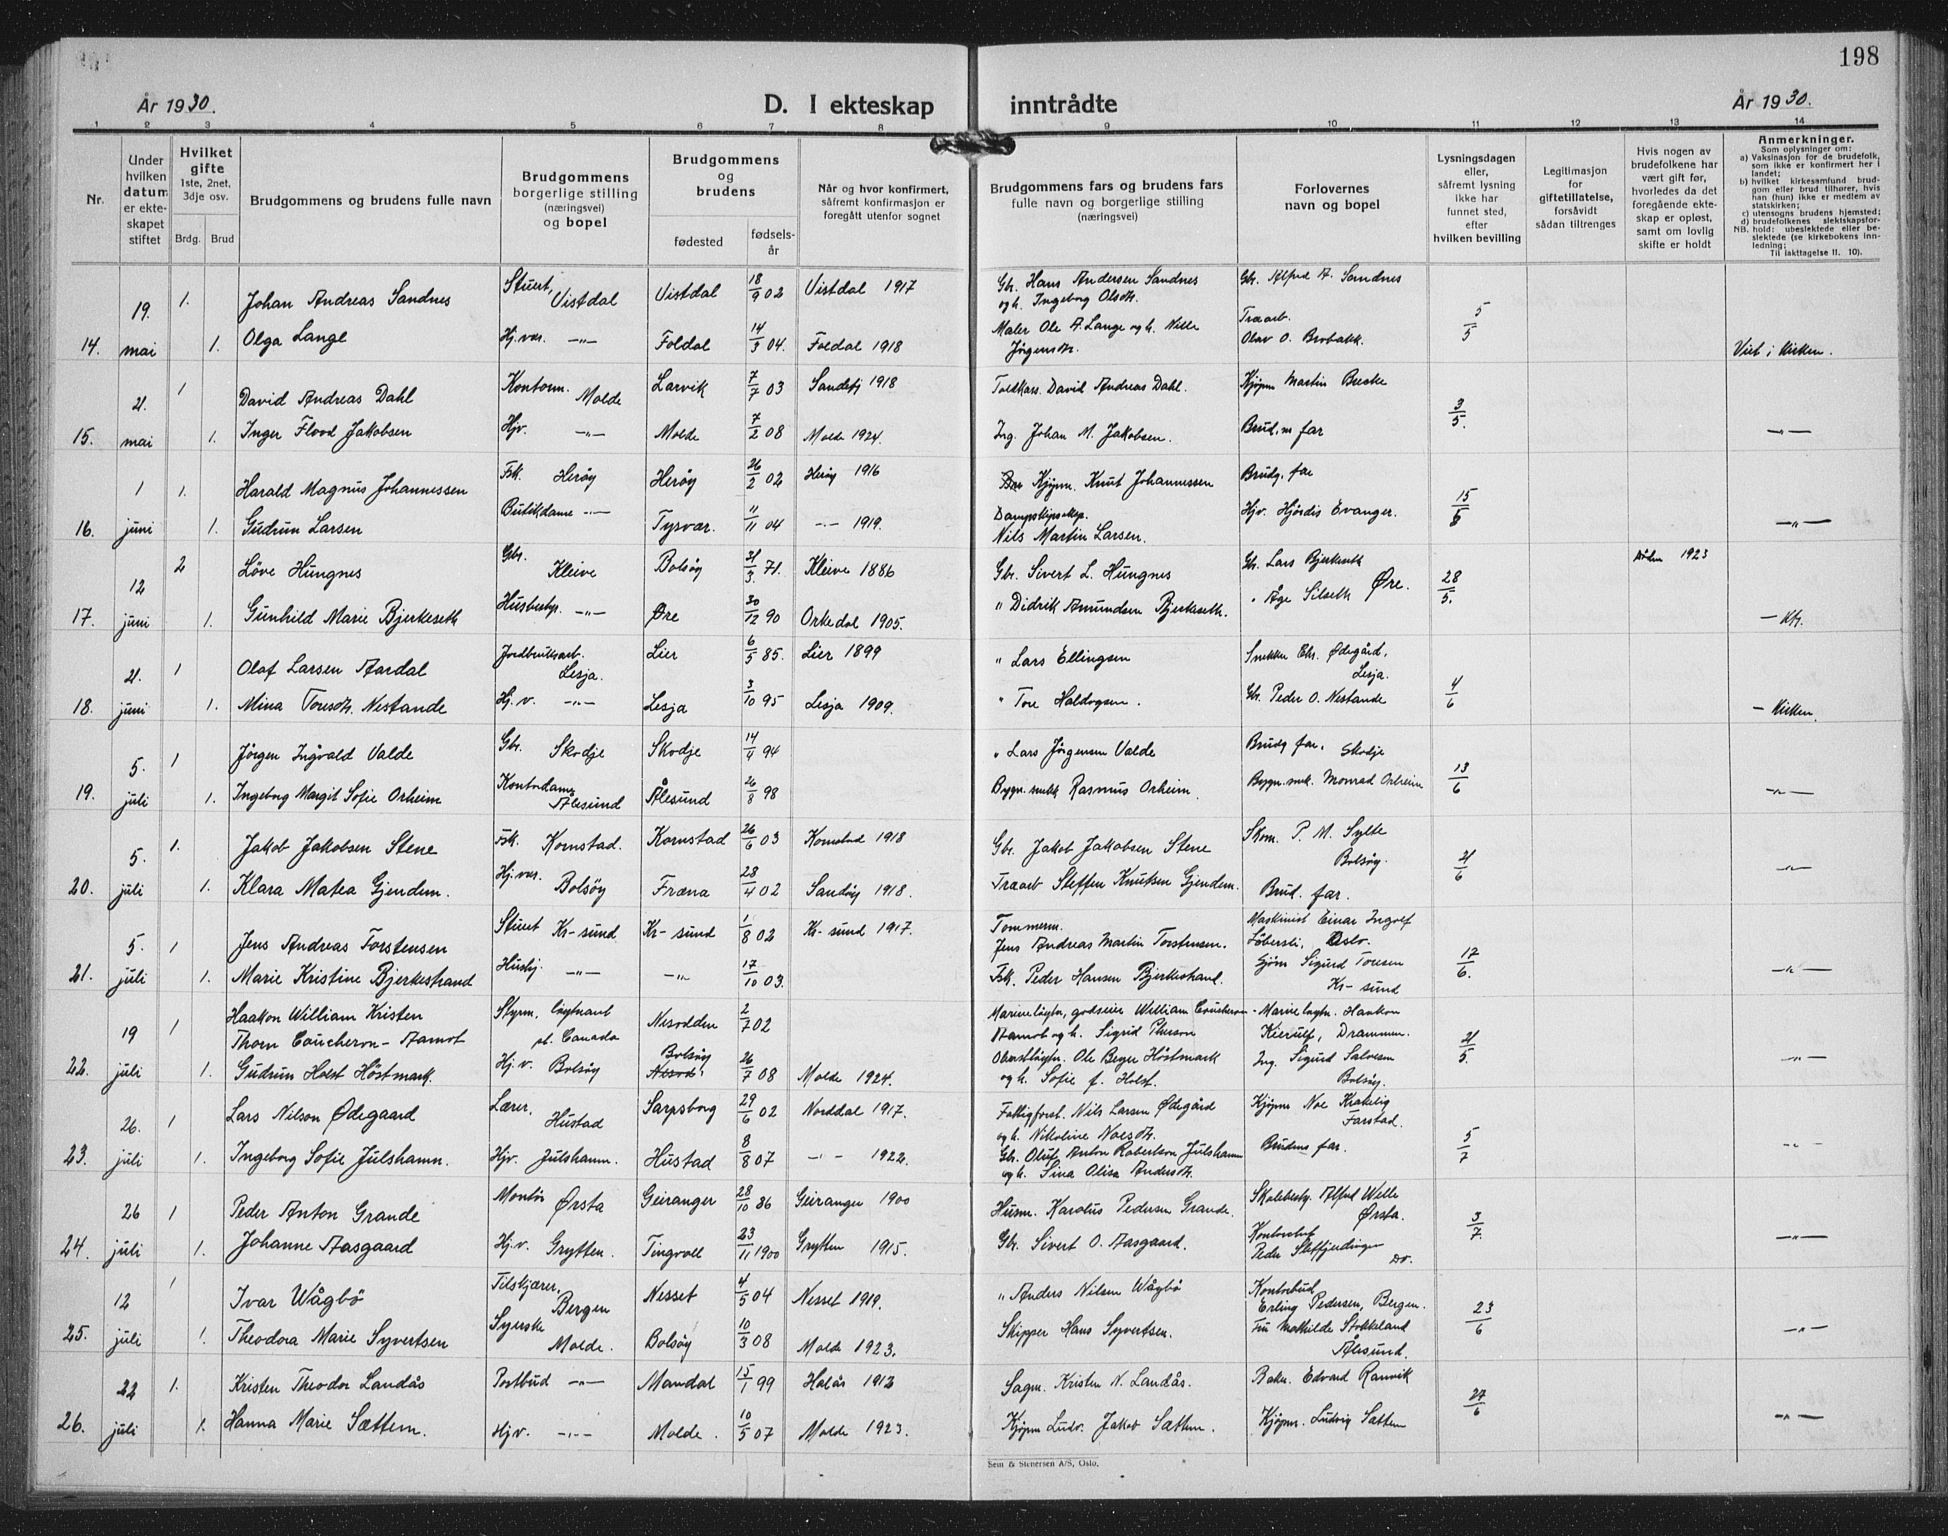 198
År 1930.
D. I ekteskap inntrådte
År 1930.
1 2 3 4 5 6 7 8 9 10 11 12 13 14
Nr.
Under hvilken datum er ekteskapet stiftet
Hvilket gifte
1ste, 2net, 3dje osv.
Brdg. Brud
Brudgommens og brudens fulle navn
Brudgommens borgerlige stilling (næringsvei) og bopel
Brudgommens og brudens
fødested
fødselsår
Når og hvor konfirmert, såfremt konfirmasjon er foregått utenfor sognet
Brudgommens fars og brudens fars fulle navn og borgerlige stilling (næringsvei)
Forlovernes navn og bopel
Lysningsdagen eller, såfremt lysning ikke har funnet sted, efter hvilken bevilling
Legitimasjon for giftetillatelse, forsåvidt sådan tiltrenges
Hvis nogen av brudefolkene har vært gift før, hvorledes da det foregående ekteskap er opløst, samt om lovlig skifte er holdt
Anmerkninger.
Som oplysninger om:
a) Vaksinasjon for de brudefolk, som ikke er konfirmert her i landet;
b) hvilket kirkesamfund brudgom eller brud tilhører, hvis han (hun) ikke er medlem av statskirken;
c) utensogns brudens hjemsted;
d) brudefolkenes slektskapsforhold: ubeslektede eller beslektede (se kirkebokens innledning;
NB.
Til iakttagelse II. 10).
19. 1. Johan Andreas Sandnes Stuert, Vistdal Vistdal 18/9 02 Vistdal 1917 Gbr. Hans Andersen Sandnes og h. Ingeborg Olsdtr. Gbr. Alfred A. Sandnes 5/5
14. mai 1. Olga Lange Hj.vær. -"- Foldal 14/3 04. Foldal 1918 Maler Ole A. Lange og h. Nille Jörgensdtr. Træarb. Olav O. Brobakk. Viet i kirken.
21. 1 David Andreas Dahl Kontorm. Molde Larvik 7/7 03 Sandefj 1918 Toldkass. David Andreas Dahl. Kjøpm Martin Breske 3/5.
15. mai 1. Inger Flood Jakobsen Hjv. -"- Molde 7/2 08 Molde 1924. Ing. Johan M. Jakobsen. Brudens far -"-
1 1. Harald Magnus Johannessen Fsk. Herøy Herøy 26/2 02 Herøy 1916 Kjøpm. Knut Johannessen Brudg. far 15/5
16. juni 1. Gudrun Larsen Butikdame -"- Tysvær. 11/11 04 -"- 1919. Dampskipseksp. Nils Martin Larsen. Hjv. Hjördis Evanger. -"-
12 2 Löve Hungnes Gbr. Kleive Bolsöy 31/3. 71. Kleive 1886 Gbr. Sivert L. Hungnes Gbr. Lars Bjerkeseth 28/5. döden 1923
17. juni 1. Gunhild Marie Bjerkeseth Husbestyr. -"- Øre 30/12 90 Orkedal 1905. " Didrik Amundsen Bjerkeseth. " Åge Silseth Øre. - Kfr.
21. 1 Olaf Larsen Aardal Jordbruksarb. Lesja. Lier 6/5 85. Lier 1899 " Lars Ellingsen Snekker Chr. Ødegård, Lesja. 4/6
18. juni 1. Mina Toresdtr. Nestande Hj.v. -"- Lesja 3/10 95 Lesja 1909. " Tore Haldogsen. Gbr. Peder O. Nestande - Kirken.
5. 1 Jörgen Ingvald Valde Gbr. Skodje Skodje 14/4 94 " Lars Jörgensen Valde Brudg far. Skodje 13/6
19. juli 1. Ingeborg Margit Sofie Orheim Kontordame Ålesund Ålesund 26/8 98 Bygn.snekk Rasmus Orheim. Bygn.snek. Monrad Orheim -"-
5. 1. Jakob Jakobsen Stene Fsk. Kornstad. Kornstad 26/6 03 Kornstad 1918 Gbr. Jakob Jakobsen Stene Skom. P. M. Sylte Bolsöy. 21/6
20. juli 1. Klara Matea Gjendem. Hj.vær. Bolsöy Fræna 28/4 02 Sandöy 1918. Træarb Steffen Knutsen Gjendem. Brud. far. -"-
5. 1 Jens Andreas Torstensen Stuert Kr-sund Kr-sund 1/8 02 Kr-sund 1917. Tommerm. Jens Andreas Martin Torstensen. Maskinist Einar Ingolf Löbersli, Oslo. 17/6.
21. juli 1. Marie Kristine Bjerkestrand Husbj. -"- -"- 17/10 03. Fsk. Peder Hansen Bjerkestrand. Sigurd Toresen Kr-sund -"-
19 1 Haakon William Kristen Thorn Coucheron-Aamot Styrm. löytnant pt. Canada Nesodden 2/7 02 Marineløytn, godseier William Coucheron-Aamot og h. Sigrid Marineløytn. Haakon Kierulf, Drammen. 21/5.
22. juli 1. Gudrun Holst Höstmark. Hj.v. Bolsöy Bolsöy 26/7 08 Molde 1924. Oberstløytn. Ole Berger Höstmark og h. Sofie f. Holst. Ing. Sigurd Salvesen Bolsöy. -"-
26. 1 Lars Nilson Ødegaard Lærer, Hustad Sarpsborg 29/6 02 Norddal 1917. Fattigforst. Nils Larsen Ødegård og h. Nikoline Noesdtr. Kjøpm Noe Krakelig Farstad. 5/7
23. juli 1. Ingeborg Sofie Julshamn. Hjv. Julshamn. Hustad 8/8 07 -"- 1922. Gbr. Oluf Anton Robertson Julshamn og h. Sina Olisa Andersdtr. Brudens far. -"-
26 1 Peder Anton Grande Montör Ørsta Geiranger 28/10 86 Geiranger 1900 Husm. Karolus Pedersen Grande. Skolebesty. Alfred Welle Ørsta. 3/7.
24. juli 1. Johanne Aasgaard Hj.v. Grytten. Tingvoll 23/11 1900 Grytten 1915. Gbr. Sivert O. Aasgaard. Peder do. -"-
12 1 Ivar Wågbö Tilskjærer, Bergen Nesset 4/5 04 Nesset 1919. " Anders Nilsen Wågbö Kontorbud Erling Pedersen, Bergen. 23/6
25. juli 1. Theodora Marie Syvertsen Syerske Molde. Bolsöy 10/3 08 Molde 1923. Skipper Hans Syvertsen. Fru Mathilde Stokkeland Ålesund. -"-
22 1. Kristen Theodor Landås Postbud -"- Mandal 15/1 99 Halås 1913 Sagm. Kristen N. Landås. Baker. Edvard Ranvik 27/6
26. juli 1. Hanna Marie Sættem. Hjv. -"- Molde. 10/5 07 Molde 1923. Kjøpm Ludv. Jakob Sættem. Kjøpm. Ludvig Sættem -"-
Sem & Stenersen A/S, Oslo.